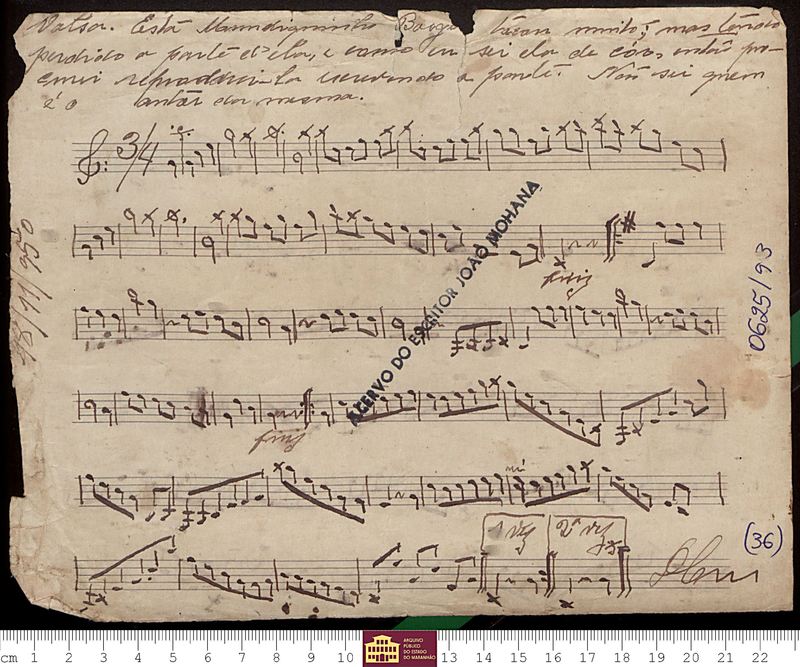 Valsa. Está tocou muito, mas tendo
perdido a parte d'ela, e como eu sei ela de cór, então pro-
curei reproduzi-la escrevendo a parte. Não sei quem
é o autor da mesma.
3/4
ACERVO DO ESCRITOR JOÃO MOHANA
fin
18/11/950
0625/93
fin
mi
1ª vez
2ª vez
(36)
cm 1 2 3 4 5 6 7 8 9 10 13 14 15 16 17 18 19 20 21 22
ARQUIVO
PÚBLICO
DO ESTADO
DO MARANHÃO